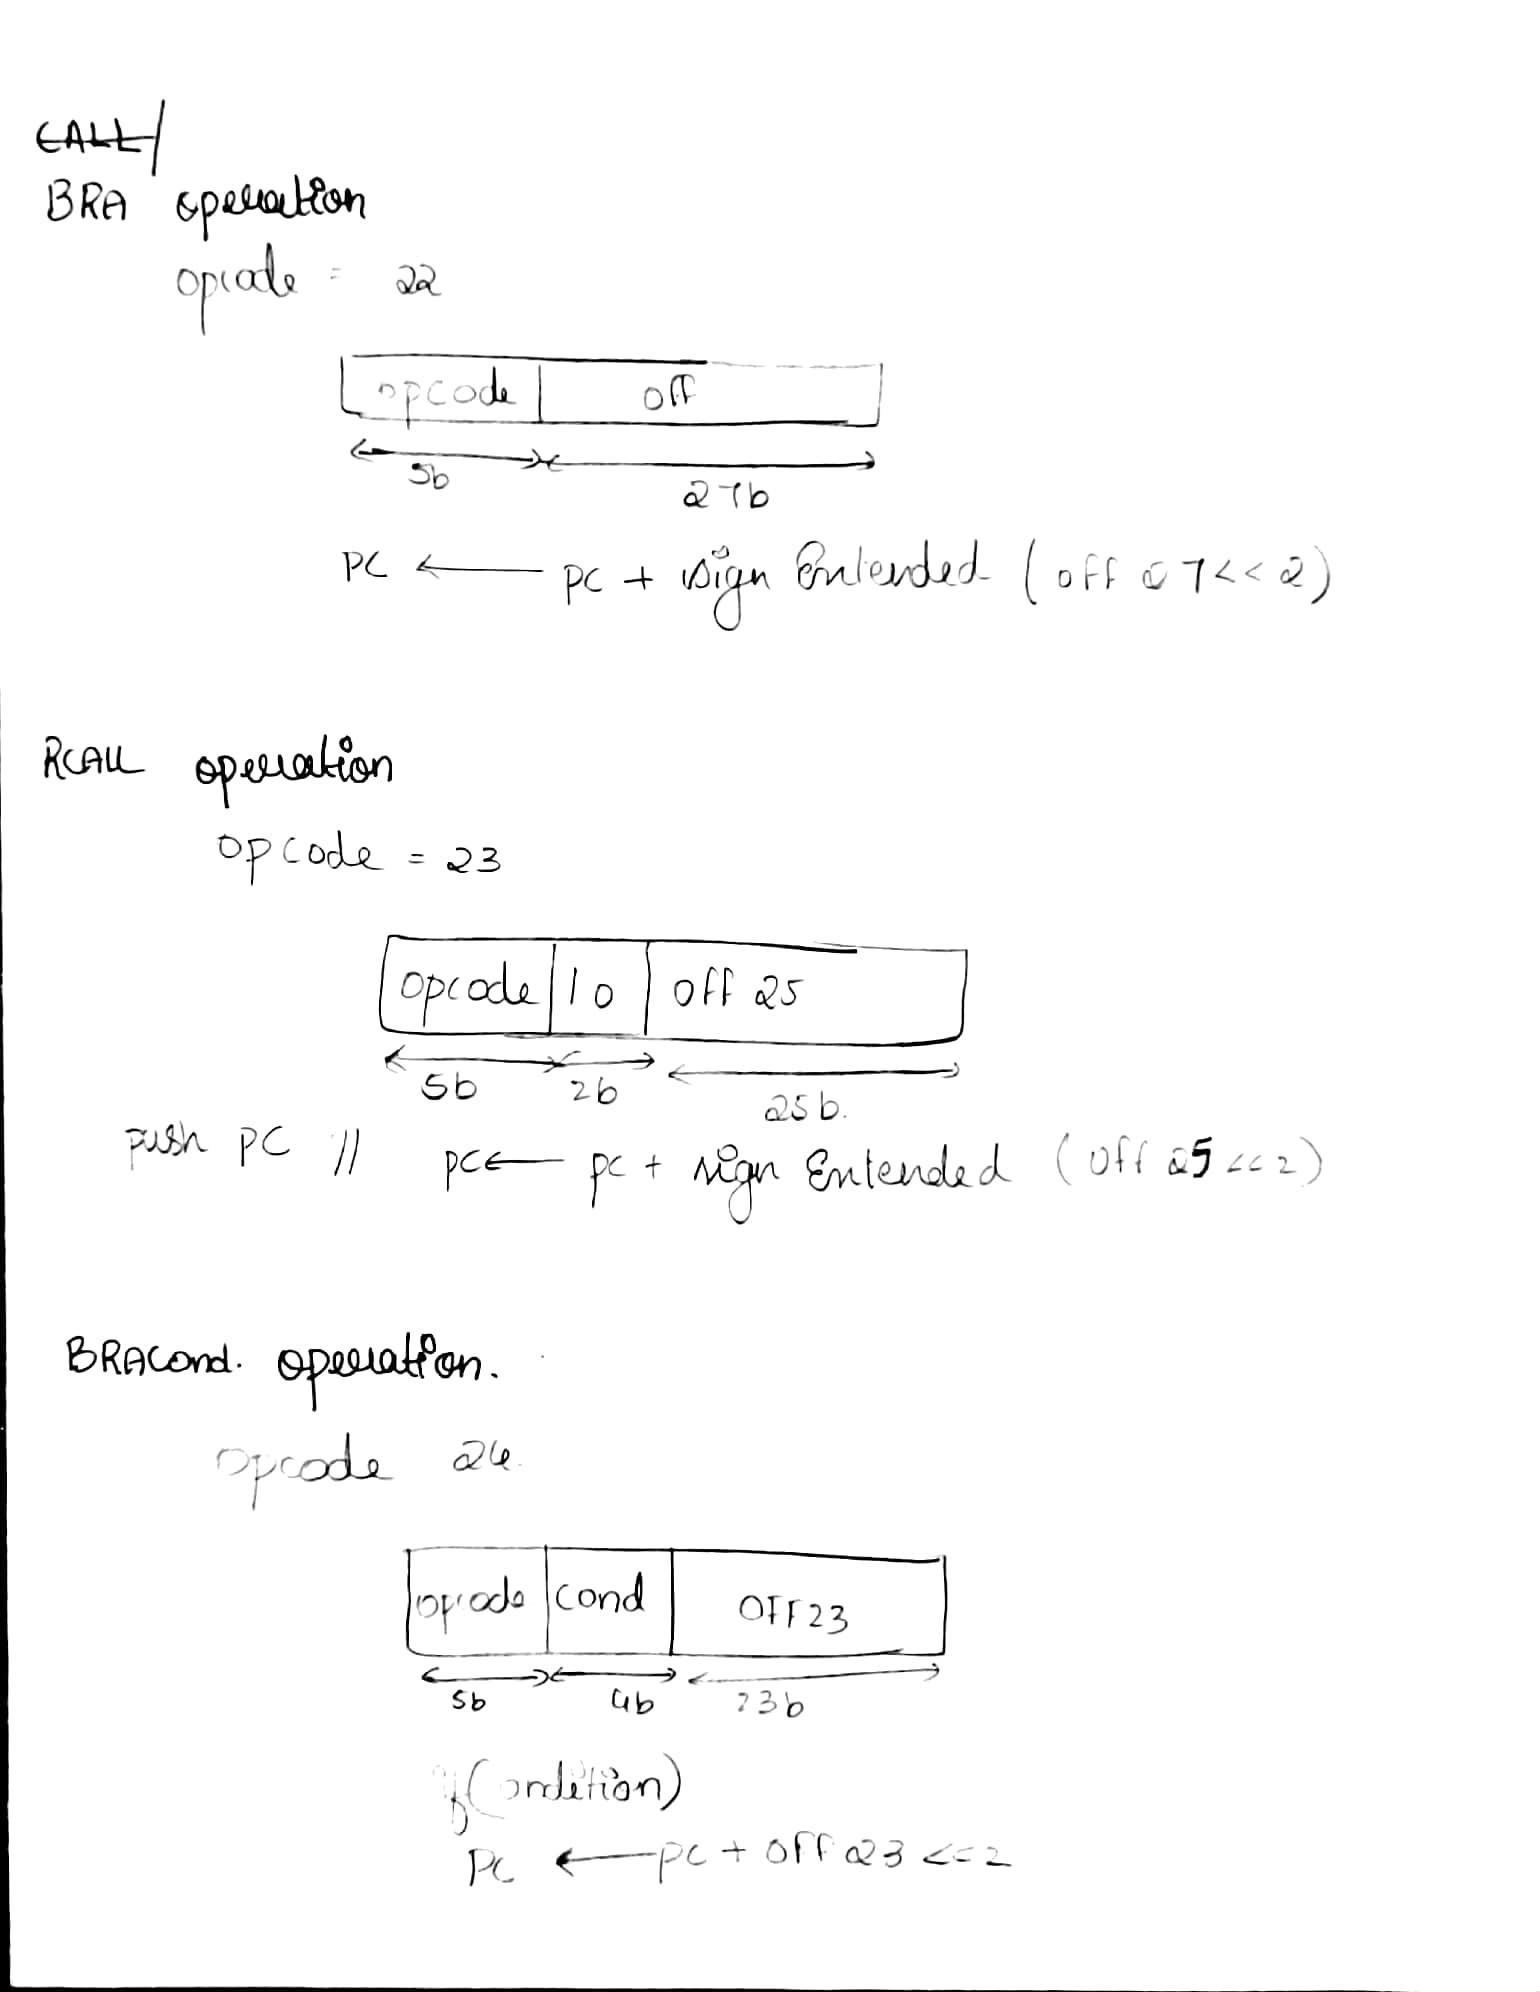 CALL/
BRA operation
opcode = 22
opcode off
5b 27b
PC ← PC + sign Entended (off 27<<2)
RCALL operation
opcode = 23
opcode 10 off 25
5b 2b 25b.
push PC // PC ← PC + sign Entended (off 25 <<2)
BRAcond. operation.
opcode 24.
opcode cond OFF23
5b 4b 23b
if (condition)
PC ← PC + off 23 <<2